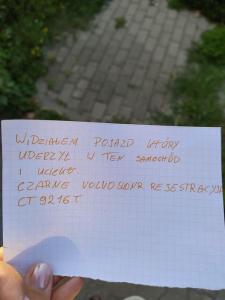 WIDZIAŁEM POJAZD KTÓRY
UDERZYŁ W TEN SAMOCHÓD
I UCIEKŁ.
CZARNE VOLVO NR REJESTRACYJN
CT 9216T